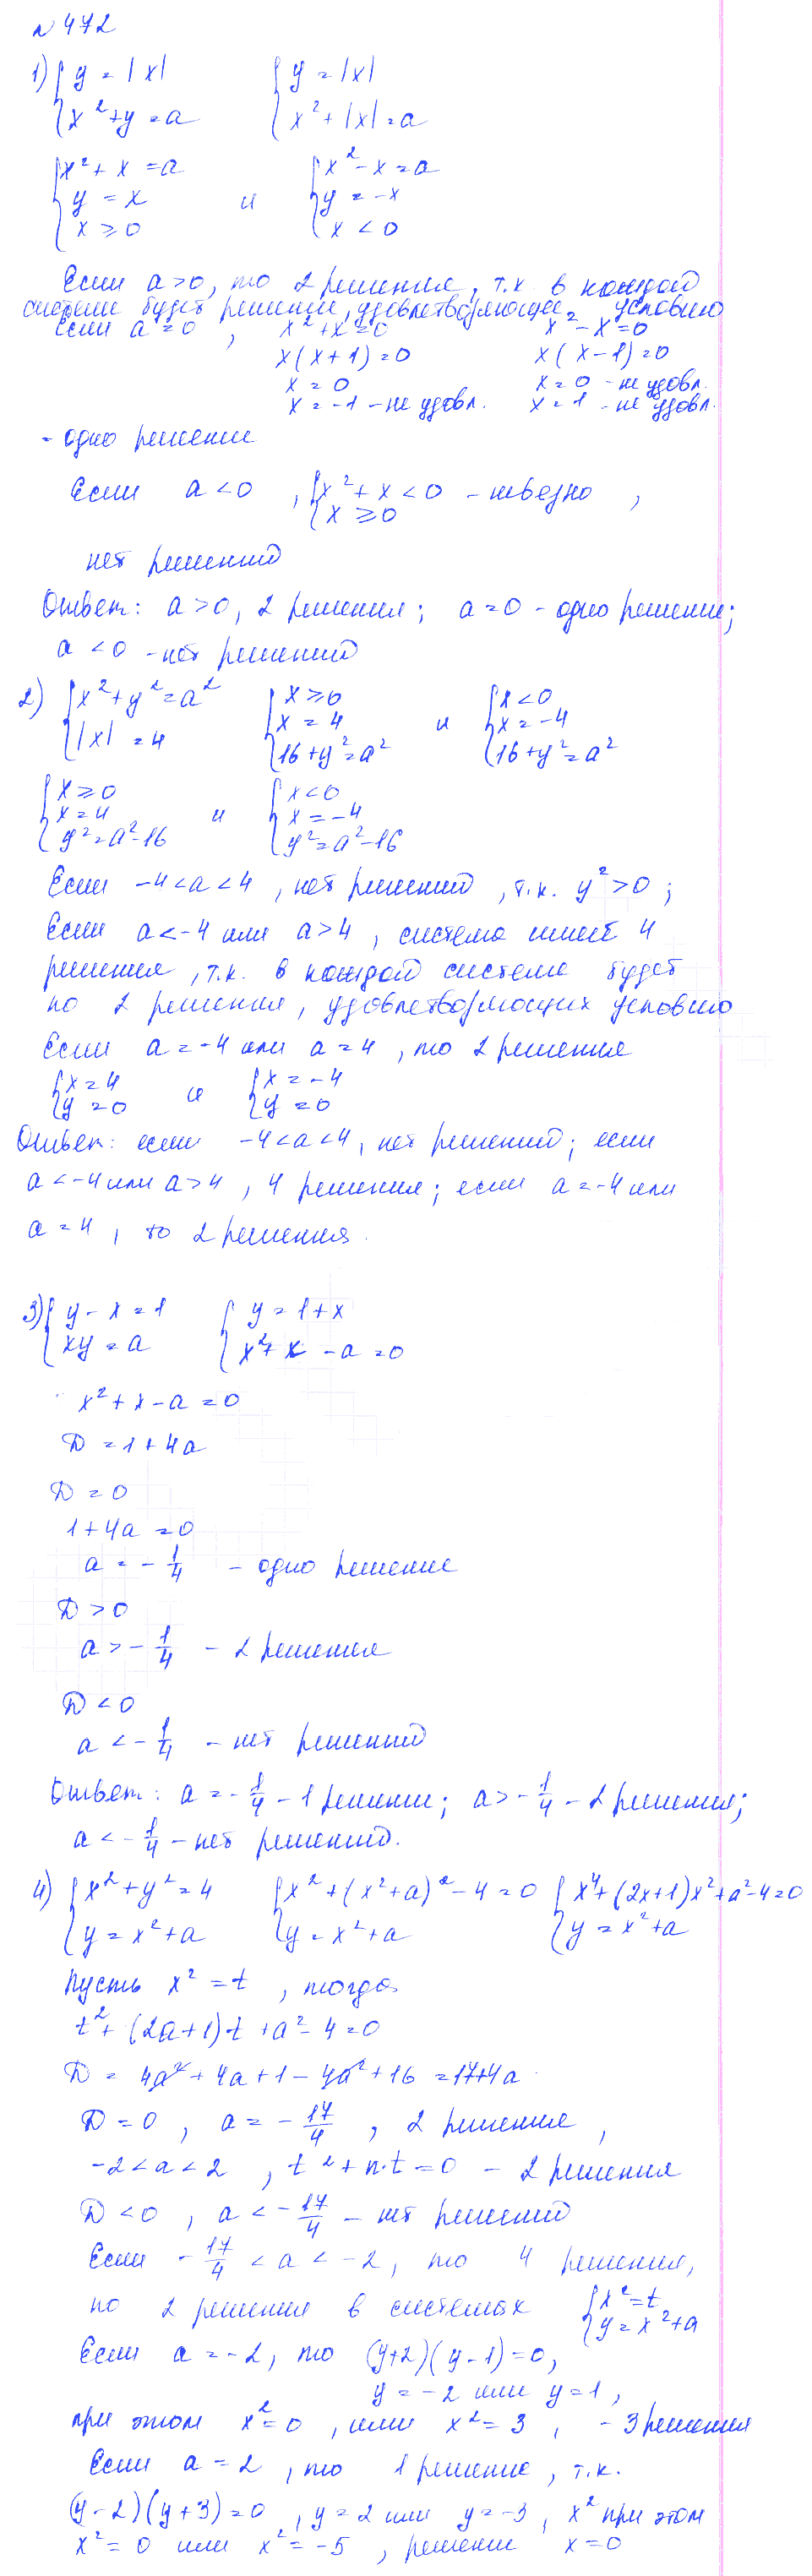 № 472
1) { y = |x|   { y = |x|
x² + y = a   x² + |x| = a
{ x² + x = a   { x² - x = a
y = x   и   y = -x
x ≥ 0   x < 0
Если a > 0, то 2 решения, т.к в каждой
системе будет решение, удовлетворяющее условию
если a = 0, x² + x = 0   x² - x = 0
x(x + 1) = 0   x(x - 1) = 0
x = 0   x = 0 - не удовл.
x = -1 - не удовл.   x = 1 - не удовл.
- одно решение
Если a < 0, { x² + x < 0 - неверно,
x ≥ 0
нет решений
Ответ: a > 0, 2 решения; a = 0 - одно решение;
a < 0 - нет решений
2) { x² + y² = a²   { x ≥ 0   { x < 0
|x| = 4   x = 4   и   x = -4
16 + y² = a²   16 + y² = a²
{ x ≥ 0   { x < 0
x = 4   и   x = -4
y² = a² - 16   y² = a² - 16
Если -4 < a < 4, нет решений, т.к. y² > 0;
Если a < -4 или a > 4, система имеет 4
решения, т.к. в каждой системе будет
по 2 решения, удовлетворяющих условию
Если a = -4 или a = 4, то 2 решения
{ x = 4   и   { x = -4
y = 0   y = 0
Ответ: если -4 < a < 4, нет решений; если
a < -4 или a > 4, 4 решения; если a = -4 или
a = 4, то 2 решения.
3) { y - x = 1   { y = 1 + x
xy = a   x² + x - a = 0
x² + x - a = 0
D = 1 + 4a
D = 0
1 + 4a = 0
a = -1/4 - одно решение
D > 0
a > -1/4 - 2 решения
D < 0
a < -1/4 - нет решений
Ответ: a = -1/4 - 1 решение; a > -1/4 - 2 решения;
a < -1/4 - нет решений.
4) { x² + y² = 4   { x² + (x² + a)² - 4 = 0   { x⁴ + (2x + 1)x² + a² - 4 = 0
y = x² + a   y = x² + a   y = x² + a
Пусть x² = t, тогда
t² + (2a + 1)t + a² - 4 = 0
D = 4a² + 4a + 1 - 4a² + 16 = 17 + 4a
D = 0, a = -17/4, 2 решения,
-2 < a < 2, t² + n·t = 0 - 2 решения
D < 0, a < -17/4 - нет решений
Если -17/4 < a < -2, то 4 решения,
по 2 решения в системах { x² = t
y = x² + a
Если a = -2, то (y + 2)(y - 1) = 0,
y = -2 или y = 1,
при этом x² = 0, или x² = 3, - 3 решения
Если a = 2, то 1 решение, т.к.
(y - 2)(y + 3) = 0, y = 2 или y = -3, x² при этом
x² = 0 или x² = -5, решение x = 0